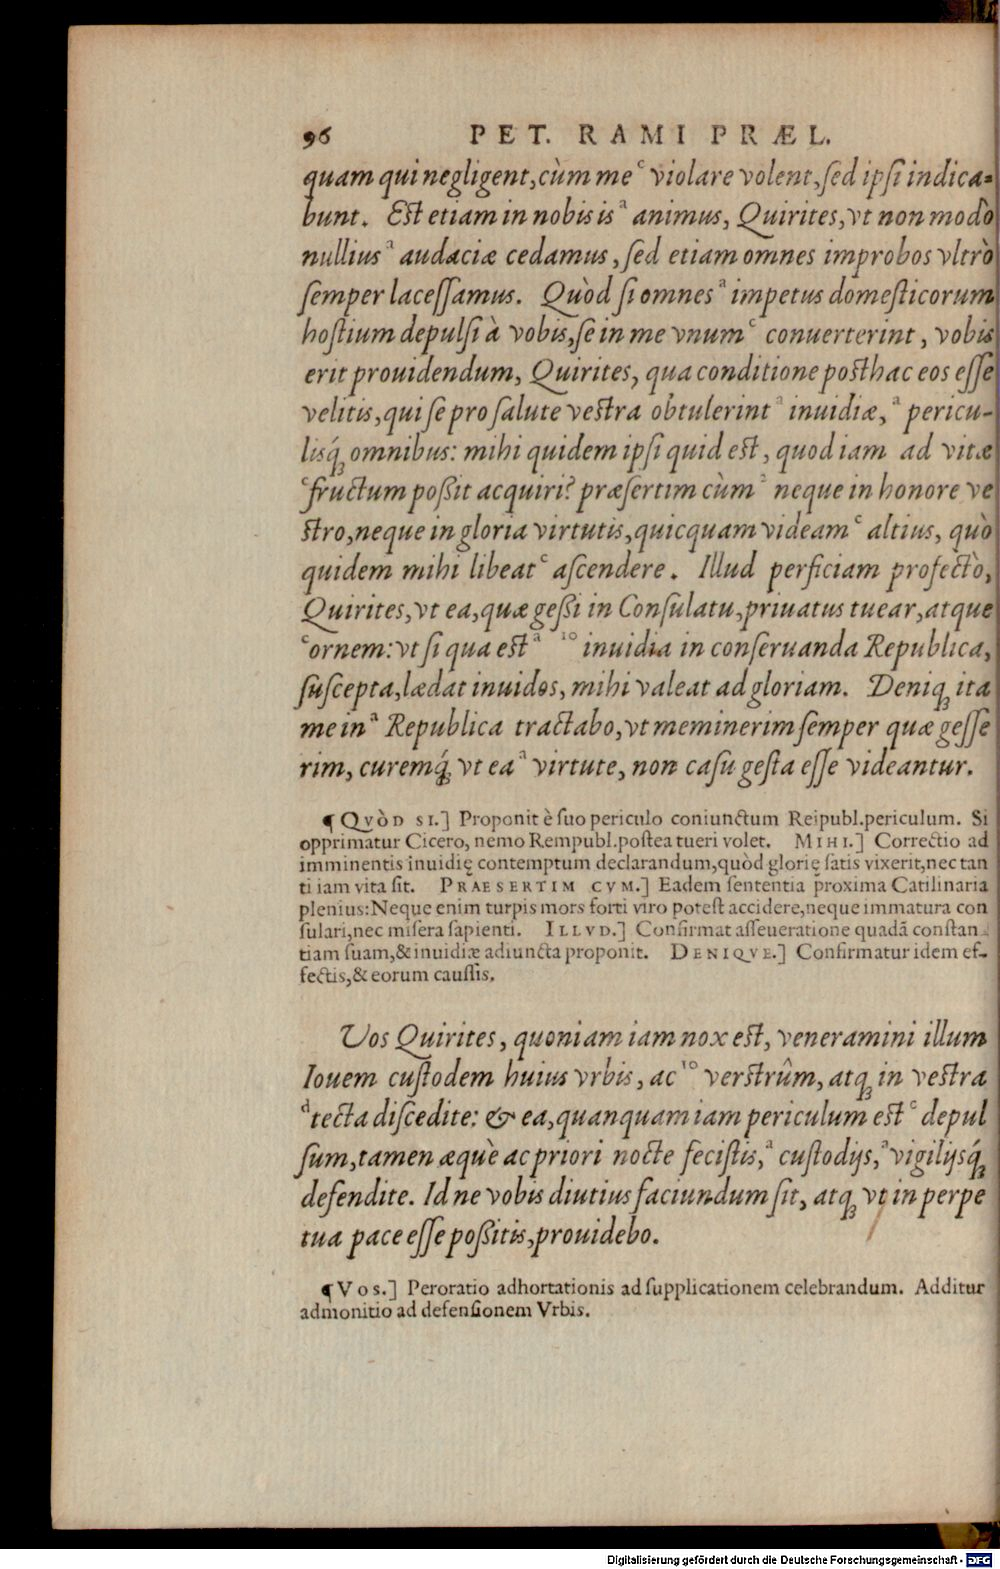 96 PET. RAMI PRÆL.
quam qui negligent, cùm me ᶜ violare volent, sed ipsi indica-
bunt. Est etiam in nobis is ᵃ animus, Quirites, vt non modò
nullius ᵃ audaciæ cedamus, sed etiam omnes improbos vltrò
semper lacessamus. Quòd si omnes ᵃ impetus domesticorum
hostium depulsi à vobis, se in me vnum ᶜ conuerterint, vobis
erit prouidendum, Quirites, qua conditione posthac eos esse
velitis, qui se pro salute vestra obtulerint ᵃ inuidiæ, ᵃ pericu-
lisq́ꝫ omnibus: mihi quidem ipsi quid est, quod iam ad vitæ
ᶜ fructum poßit acquiri? præsertim cùm ² neque in honore ve
stro, neque in gloria virtutis, quicquam videam ᶜ altius, quò
quidem mihi libeat ᶜ ascendere. Illud perficiam profectò,
Quirites, vt ea, quæ geßi in Consulatu, priuatus tuear, atque
ᶜ ornem: vt si qua est ᵃ ¹⁰ inuidia in conseruanda Republica,
suscepta, lædat inuidos, mihi valeat ad gloriam. Deniqꝫ ita
me in ᵃ Republica tractabo, vt meminerim semper quæ gesse
rim, curemq́ꝫ vt ea ᵃ virtute, non casu gesta esse videantur.
¶ QVÒD SI.] Proponit è suo periculo coniunctum Reipubl. periculum. Si
opprimatur Cicero, nemo Rempubl. postea tueri volet. MIHI.] Correctio ad
imminentis inuidię contemptum declarandum, quòd glorię satis vixerit, nec tan
ti iam vita sit. PRAESERTIM CVM.] Eadem sententia p̃roxima Catilinaria
plenius: Neque enim turpis mors forti viro potest accidere, neque immatura con
sulari, nec misera sapienti. ILLVD.] Confirmat asseueratione quadā constan-
tiam suam, & inuidiæ adiuncta proponit. DENIQVE.] Confirmatur idem ef-
fectis, & eorum caussis.
Vos Quirites, quoniam iam nox est, veneramini illum
Iouem custodem huius vrbis, ac ¹⁰ verstrûm, atqꝫ in vestra
ᵃ tecta discedite: & ea, quanquam iam periculum est ᶜ depul
sum, tamen æquè ac priori nocte fecistis, ᵃ custodijs, ᵃ vigilijsq́ꝫ
defendite. Id ne vobis diutius faciundum sit, atqꝫ vt in perpe
tua pace esse poßitis, prouidebo.
¶ Vos.] Peroratio adhortationis ad supplicationem celebrandum. Additur
admonitio ad defensionem Vrbis.
Digitalisierung gefördert durch die Deutsche Forschungsgemeinschaft - DFG